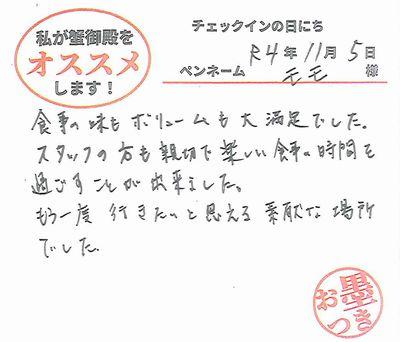 私が蟹御殿を
オススメ
します！
チェックインの日にち
R4年11月5日
ペンネーム モモ 様
食事の味もボリュームも大満足でした。
スタッフの方も親切で楽しい食事の時間を
過ごすことが出来ました。
もう一度行きたいと思える素敵な場所
でした。
お墨つき